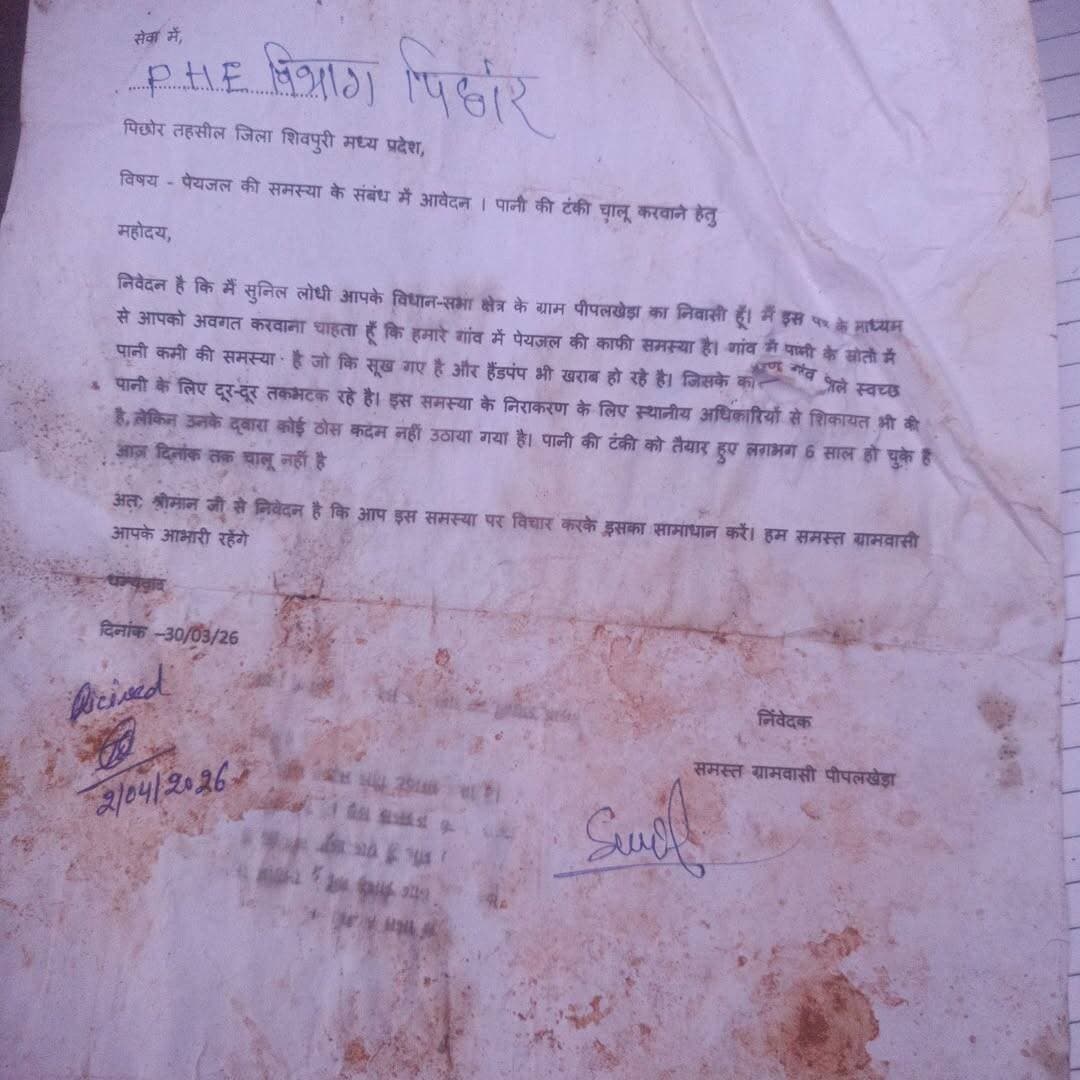 सेवा में,
PHE विभाग पिछोर
पिछोर तहसील जिला शिवपुरी मध्य प्रदेश,
विषय - पेयजल की समस्या के संबंध में आवेदन । पानी की टंकी चालू करवाने हेतु
महोदय,
निवेदन है कि मैं सुनिल लोधी आपके विधान-सभा क्षेत्र के ग्राम पीपलखेड़ा का निवासी हूँ। मैं इस पत्र के माध्यम
से आपको अवगत करवाना चाहता हूँ कि हमारे गांव में पेयजल की काफी समस्या है। गांव में पानी के स्रोतों में
पानी कमी की समस्या है जो कि सूख गए है और हैंडपंप भी खराब हो रहे है। जिसके गांव स्वच्छ
पानी के लिए दूर-दूर तकभटक रहे है। इस समस्या के निराकरण के लिए स्थानीय अधिकारियों से शिकायत भी की
है, लेकिन उनके द्वारा कोई ठोस कदम नहीं उठाया गया है। पानी की टंकी को तैयार हुए लगभग 6 साल हो चुके है
आज दिनांक तक चालू नहीं है
अत: श्रीमान जी से निवेदन है कि आप इस समस्या पर विचार करके इसका सामाधान करें। हम समस्त ग्रामवासी
आपके आभारी रहेगे
धन्यवाद
दिनांक –30/03/26
Recived
2/04/2026
निंवेदक
समस्त ग्रामवासी पीपलखेड़ा